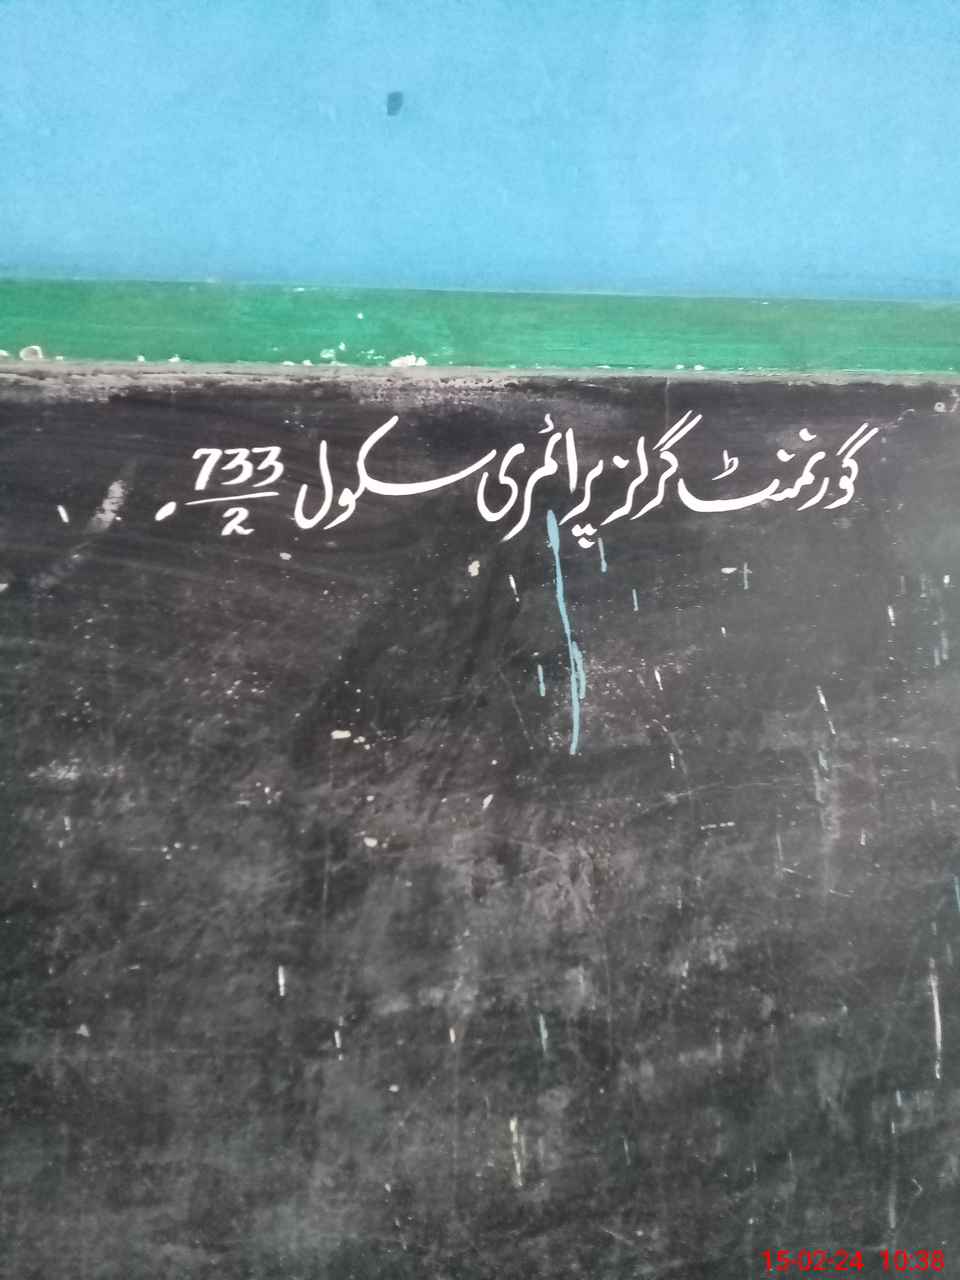 گورنمنٹ گرلز پرائمری سکول 733/2
15-02-24 10:38